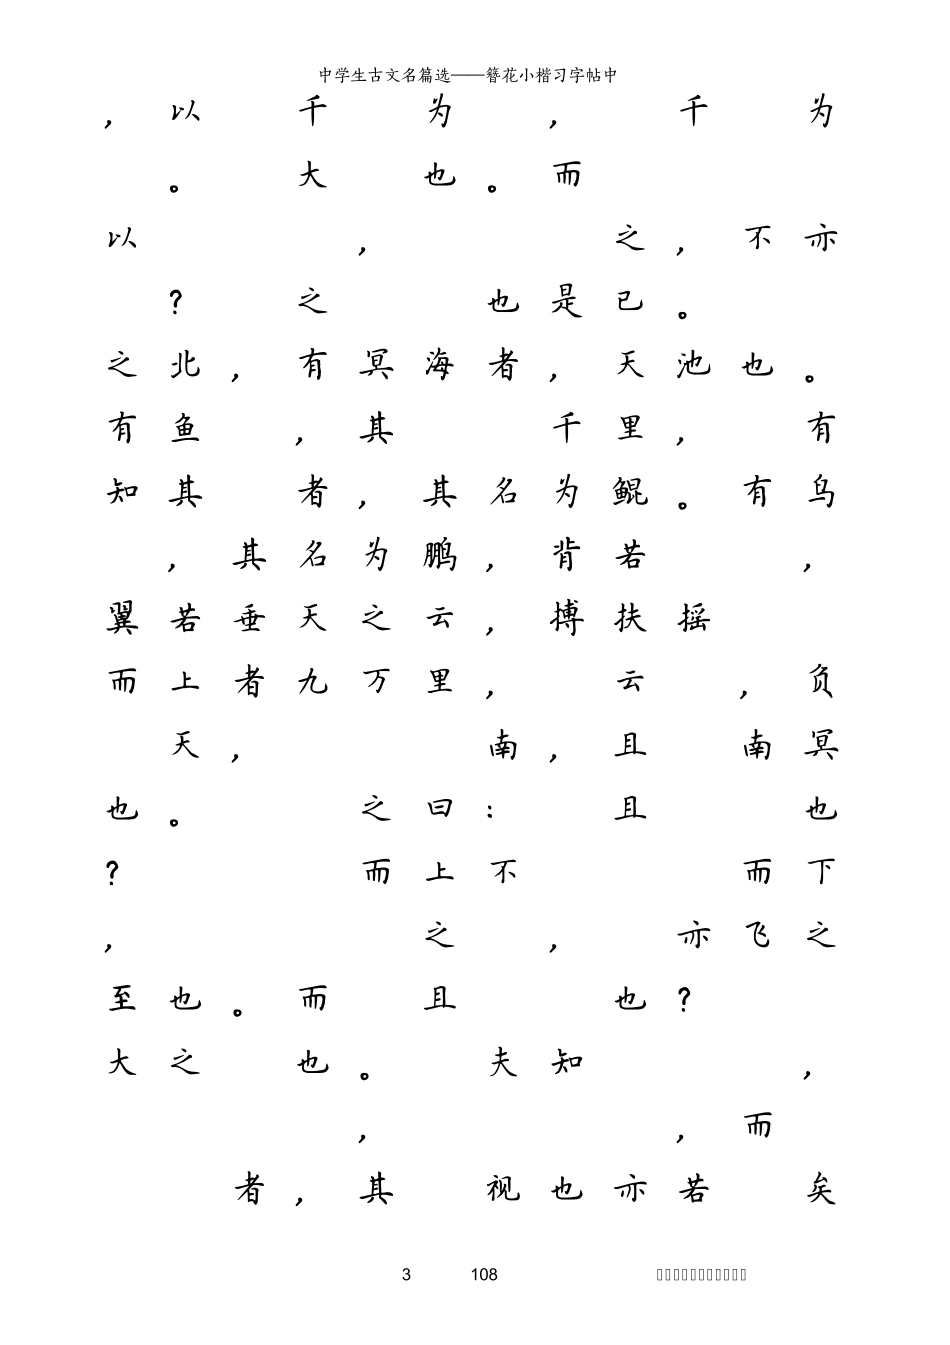 中学生古文名篇选——簪花小楷习字帖中
，以 千 为 ， 千 为
。 大 也 。 而
以 ， 之 ， 不 亦
？ 之 也 是 已 。
之 北 ， 有 冥 海 者 ， 天 池 也 。
有 鱼 ， 其 千 里 ， 有
知 其 者 ， 其 名 为 鲲 。 有 鸟
， 其 名 为 鹏 ， 背 若 ，
翼 若 垂 天 之 云 ， 搏 扶 摇
而 上 者 九 万 里 ， 云 ， 负
天 ， 南 ， 且 南 冥
也 。 之 曰 ： 且 也
？ 而 上 不 而 下
， 之 ， 亦 飞 之
至 也 。 而 且 也 ？
大 之 也 。 夫 知 ，
， ， 而
者 ， 其 视 也 亦 若 矣
3 108